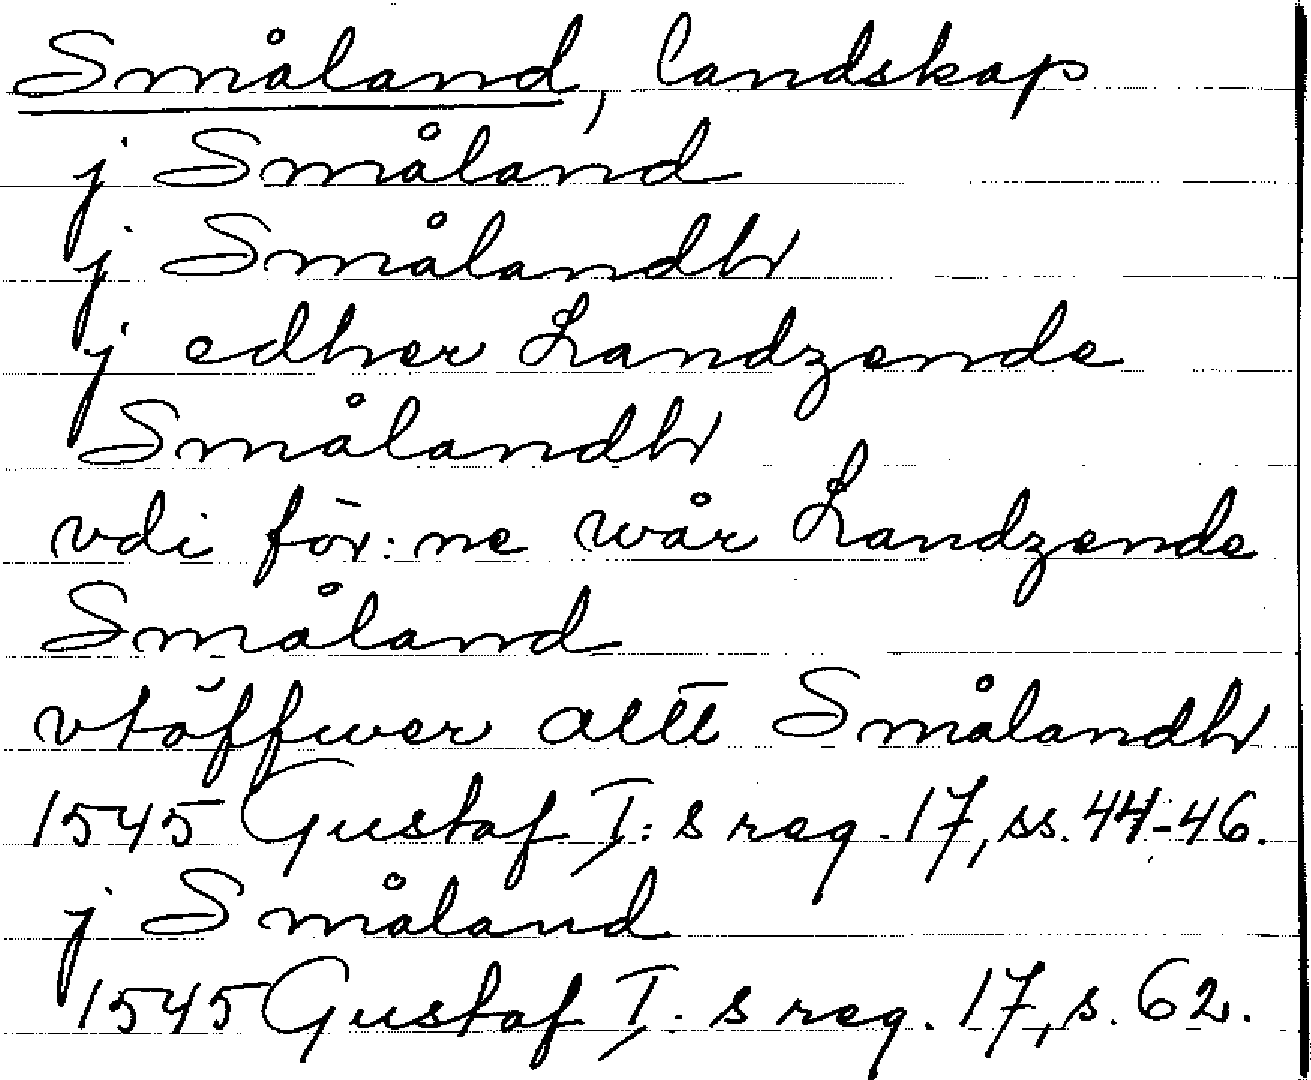 Småland, landskap
j Småland
j Smålandh
j edher Landzende
Smålandh
vdi för:ne wår Landzende
Småland
vtöffwer altt Smålandh
1545 Gustaf I:s reg. 17, ss. 44-46.
j Småland
1545 Gustaf I:s reg. 17, s. 62.